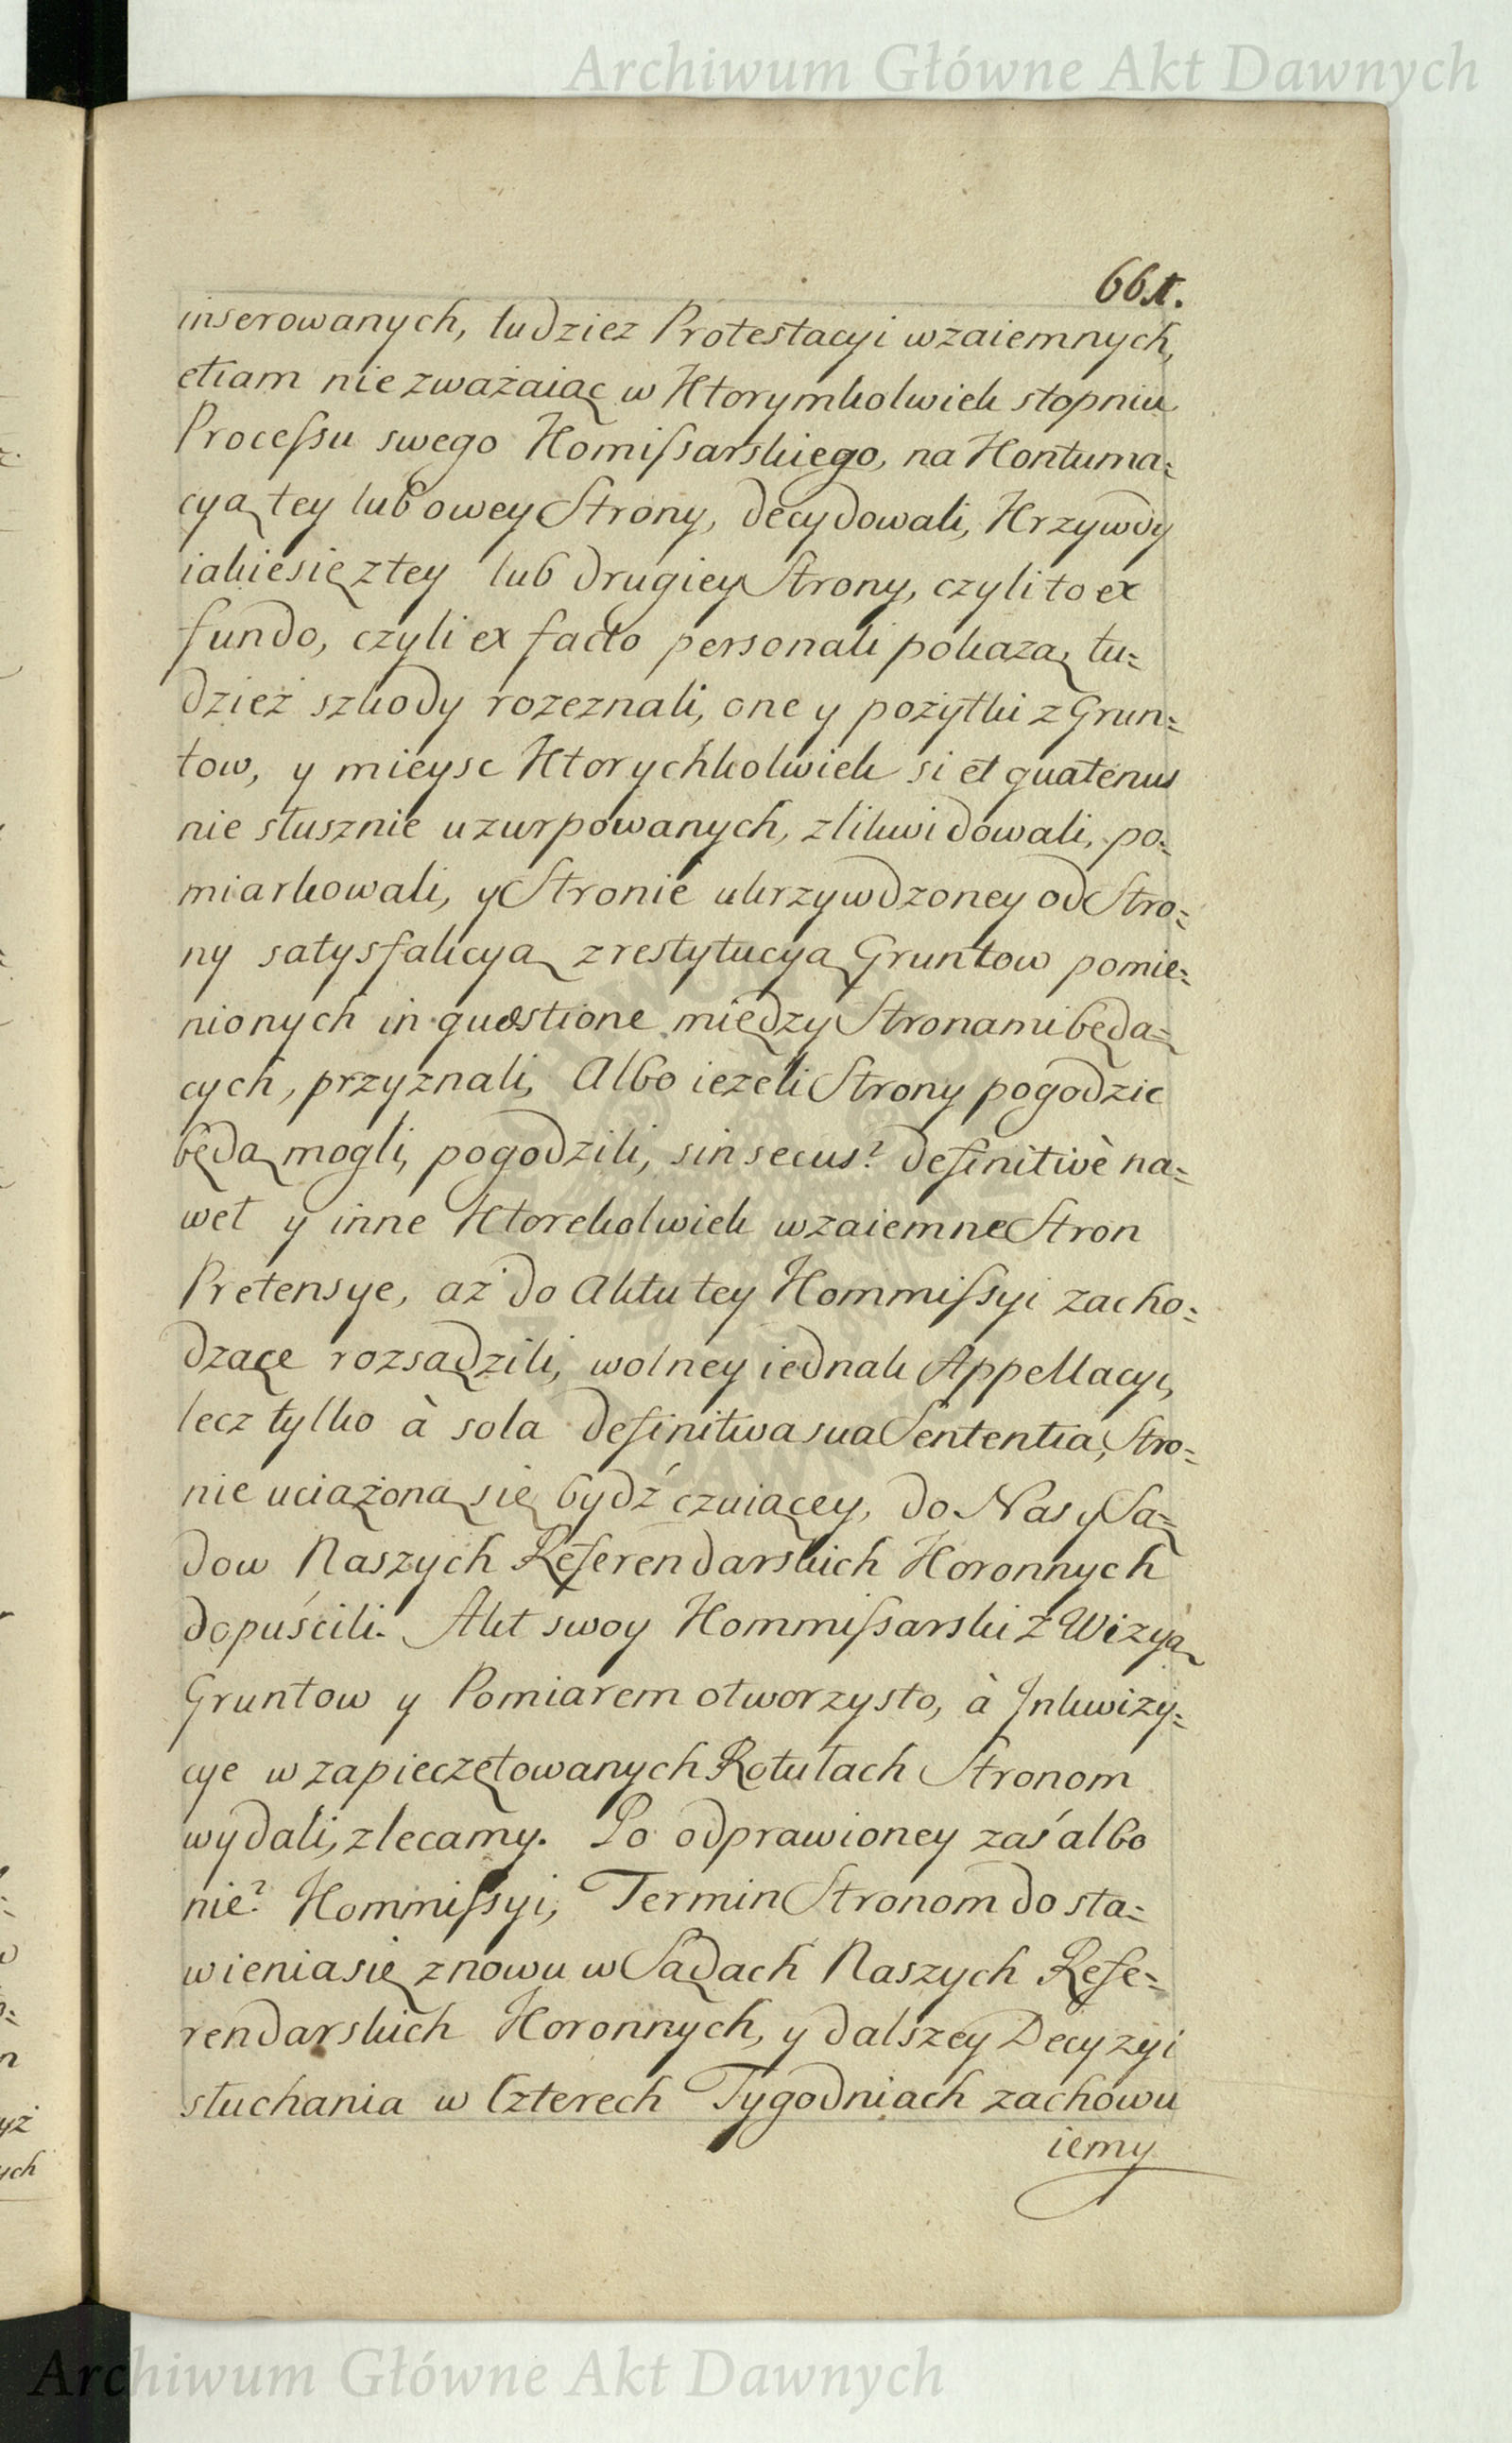 Archiwum Główne Akt Dawnych
661.
inserowanych, tudziez Protestacyi wzaiemnych,
etiam nie zważaiąc w Ktorymkolwiek stopniu
Processu swego Komissarskiego, na Kontuma=
cyą tey lub owey Strony, decydowali, Krzywdy
iakie się z tey lub drugiey Strony, czyli to ex
fundo, czyli ex facto personali pokazą tu=
dzież szkody rozeznali, one y pożytki z Grun=
tow, y mieysc Ktorychkolwiek si et quatenus
nie słusznie uzurpowanych, zlikwidowali, po=
miarkowali, y Stronie ukrzywdzoney od Stro=
ny satysfakcyą z restytucyą Gruntow pomie=
nionych in quæstione między Stronami będą=
cych, przyznali, Albo iezeli Strony pogodzic
będą mogli, pogodzili, sin secus? definitivè na=
wet y inne Ktorekolwiek wzaiemne Stron
Pretensye, aż do Aktu tey Kommissyi zacho=
dzące rozsądzili, wolney iednak Appellacyi,
lecz tylko à sola definitiva sua Sententia, Stro=
nie uciążoną się bydź czuiącey, do Nas y Są=
dow Naszych Referendarskich Koronnych
dopuścili. Akt swoy Kommissarski z Wizyą
Gruntow y Pomiarem otworzysto, à Inkwizy=
cye w zapieczętowanych Rotułach Stronom
wydali, zlecamy. Po odprawioney zaś albo
nie? Kommissyi, Termin Stronom do sta=
wienia się znowu w Sądach Naszych Refe=
rendarskich Koronnych, y dalszey Decyzyi
słuchania w Czterech Tygodniach zachowu
iemy
Archiwum Główne Akt Dawnych